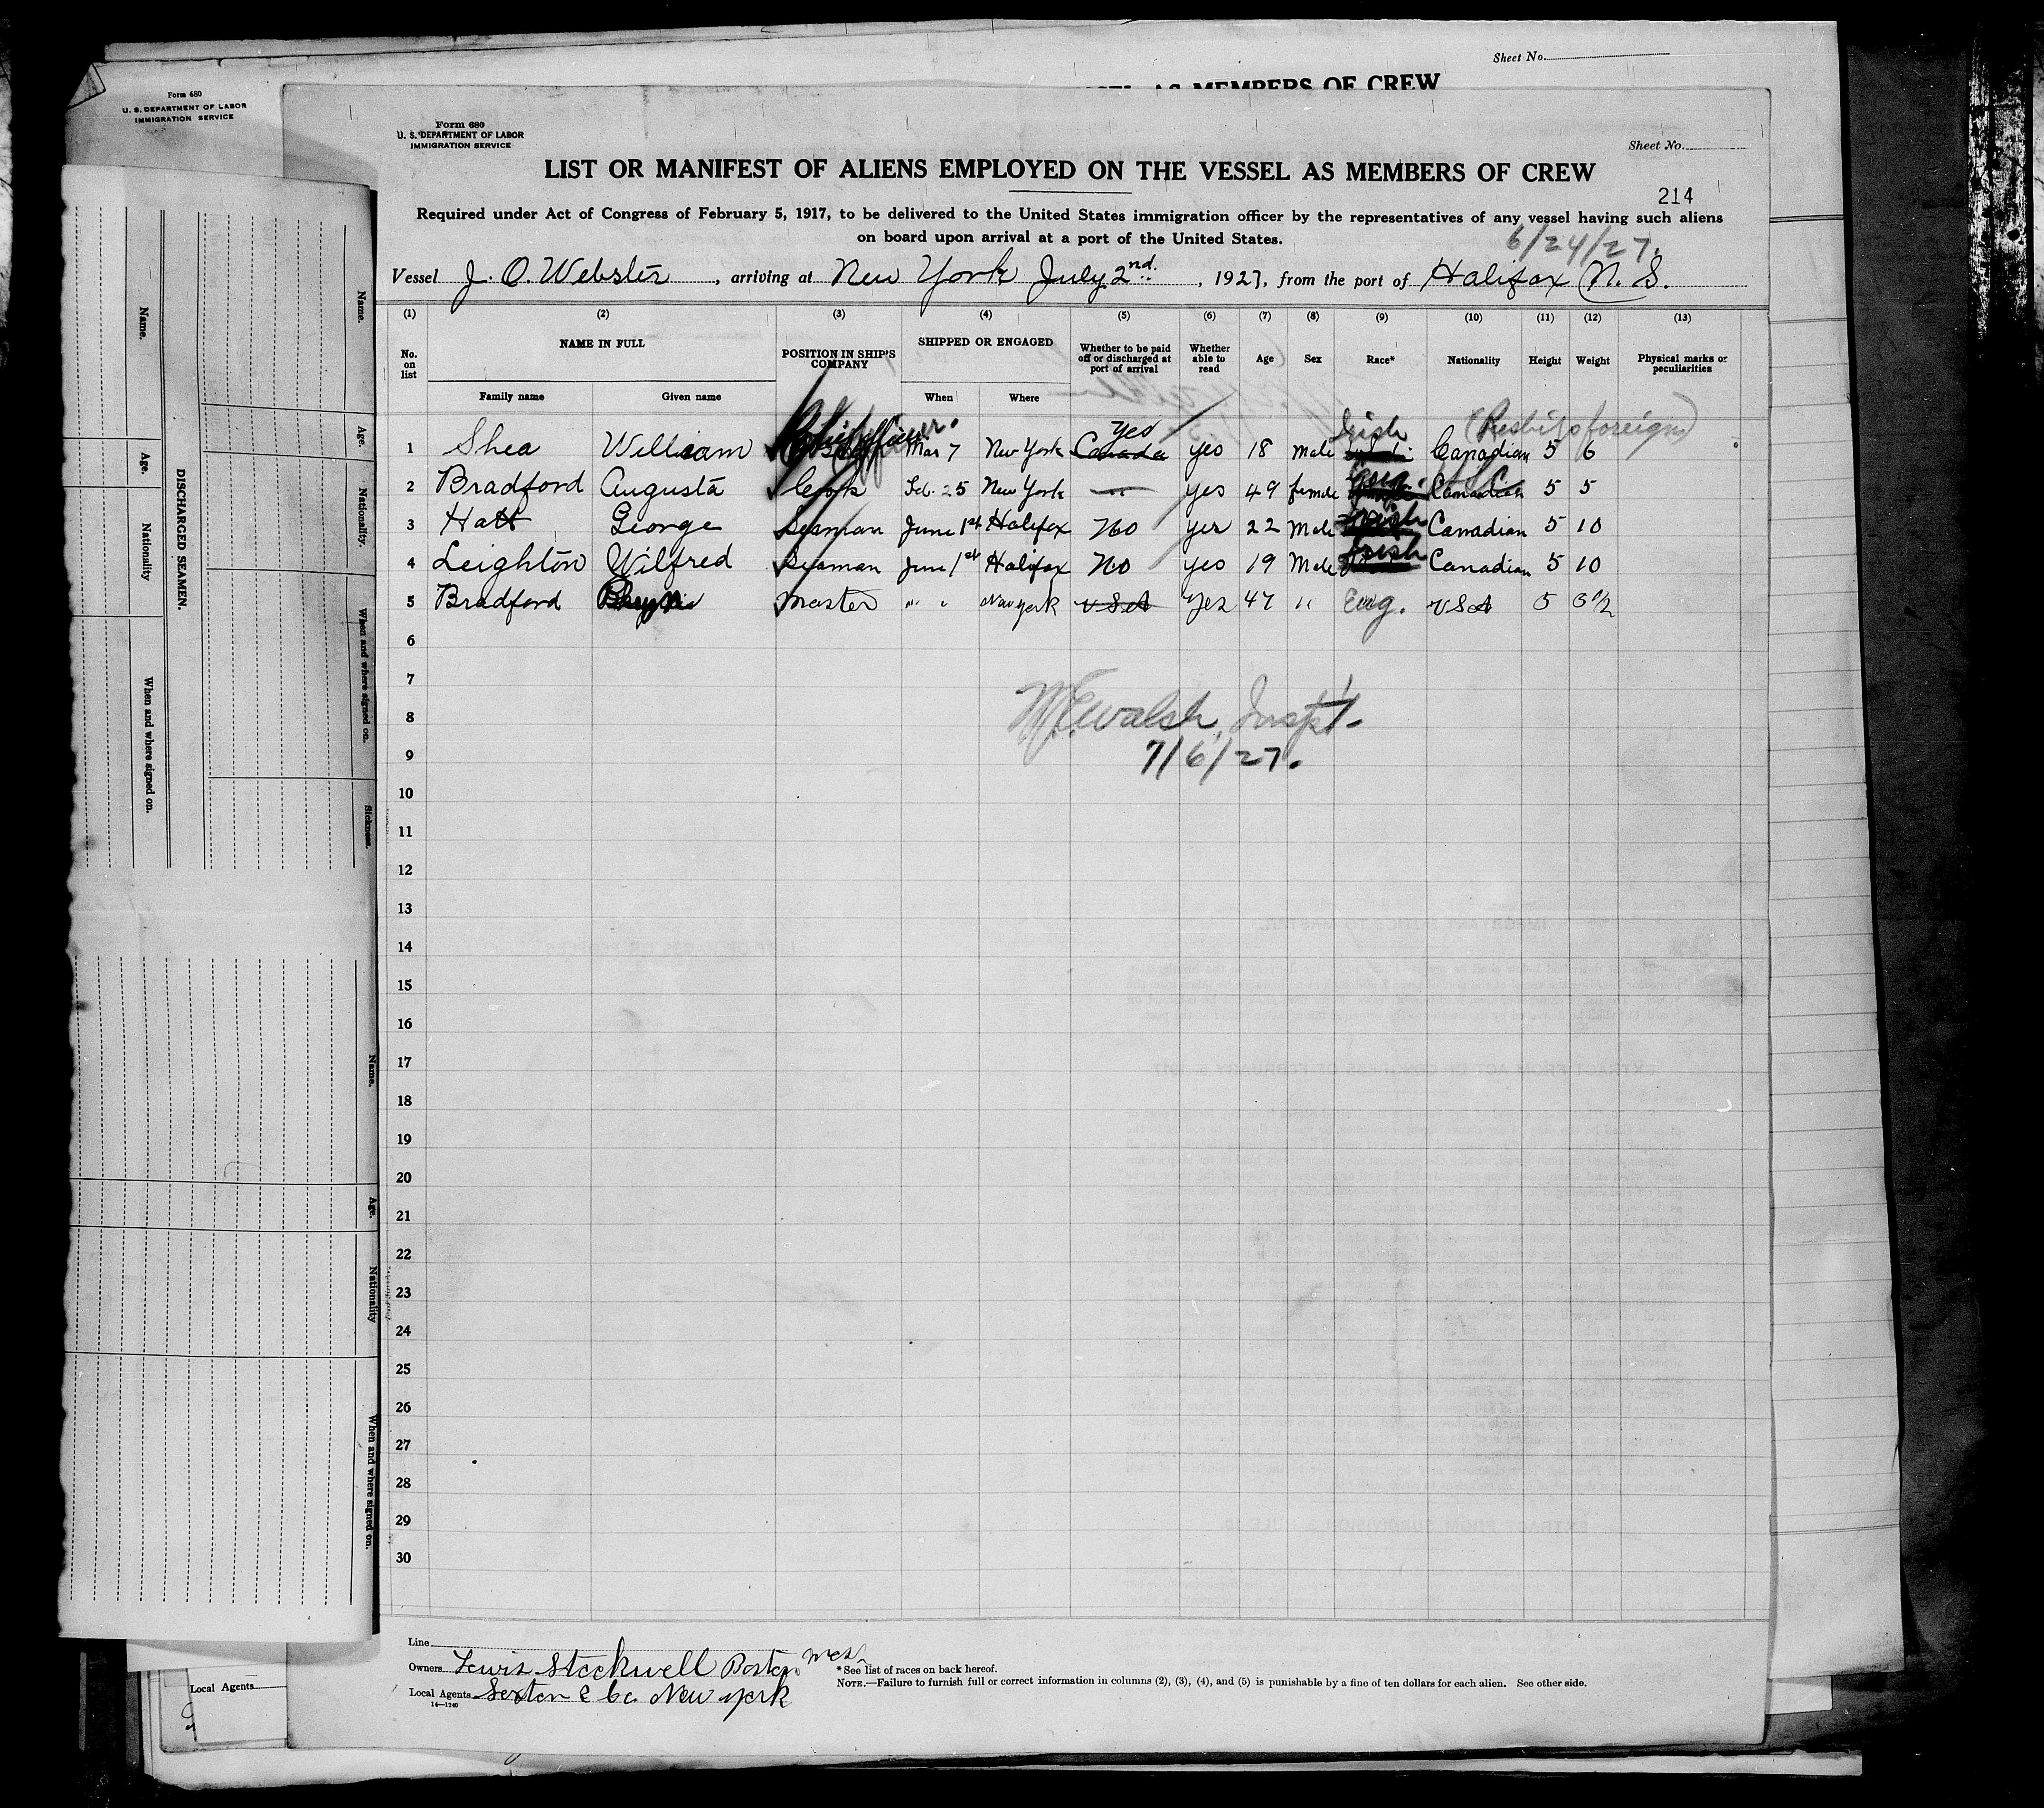 Sheet No.
AS MEMBERS OF CREW
Form 680
U. S. DEPARTMENT OF LABOR
IMMIGRATION SERVICE
Form 680
U. S. DEPARTMENT OF LABOR
IMMIGRATION SERVICE
Sheet No.
LIST OR MANIFEST OF ALIENS EMPLOYED ON THE VESSEL AS MEMBERS OF CREW
214
Required under Act of Congress of February 5, 1917, to be delivered to the United States immigration officer by the representatives of any vessel having such aliens
on board upon arrival at a port of the United States.
6/24/27.
Vessel J. O. Webster, arriving at New York July 2nd, 1927, from the port of Halifax N. S.
(1) (2) (3) (4) (5) (6) (7) (8) (9) (10) (11) (12) (13)
No. on list NAME IN FULL POSITION IN SHIP'S COMPANY SHIPPED OR ENGAGED Whether to be paid off or discharged at port of arrival Whether able to read Age Sex Race* Nationality Height Weight Physical marks or peculiarities
Family name Given name When Where
Yes Irish (Reship foreign)
1 Shea William Mar 7 New York Canada yes 18 male Canadian 5 6
2 Bradford Augusta Cook Feb. 25 New York yes 49 female Canadian 5 5
3 Hatt George Seaman June 1st Halifax No yes 22 Male Canadian 5 10
4 Leighton Wilfred Seaman June 1st Halifax No yes 19 Male Irish Canadian 5 10
5 Bradford Master " " New York USA Yes 47 " Eng. USA 5 5 1/2
6
7
8 Walsh, Inspt.
9 7/6/27.
10
11
12
13
14
15
16
17
18
19
20
21
22
23
24
25
26
27
28
29
30
Line
Owners Lewis Stockwell Boston Mass
Local Agents Sexton & Co. New York
14—1240
*See list of races on back hereof.
NOTE.—Failure to furnish full or correct information in columns (2), (3), (4), and (5) is punishable by a fine of ten dollars for each alien. See other side.
Local Agents
DISCHARGED SEAMEN.
Name.
Age.
Nationality
When and where signed on.
Name.
Age.
Nationality.
When and where signed on.
Sickness.
Name.
Age.
Nationality
When and where signed on.